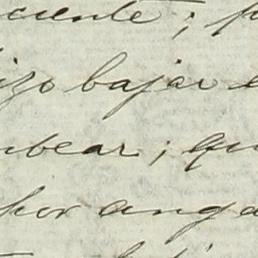 ciente; p
izo bajar e
mbear; qu
hor anga